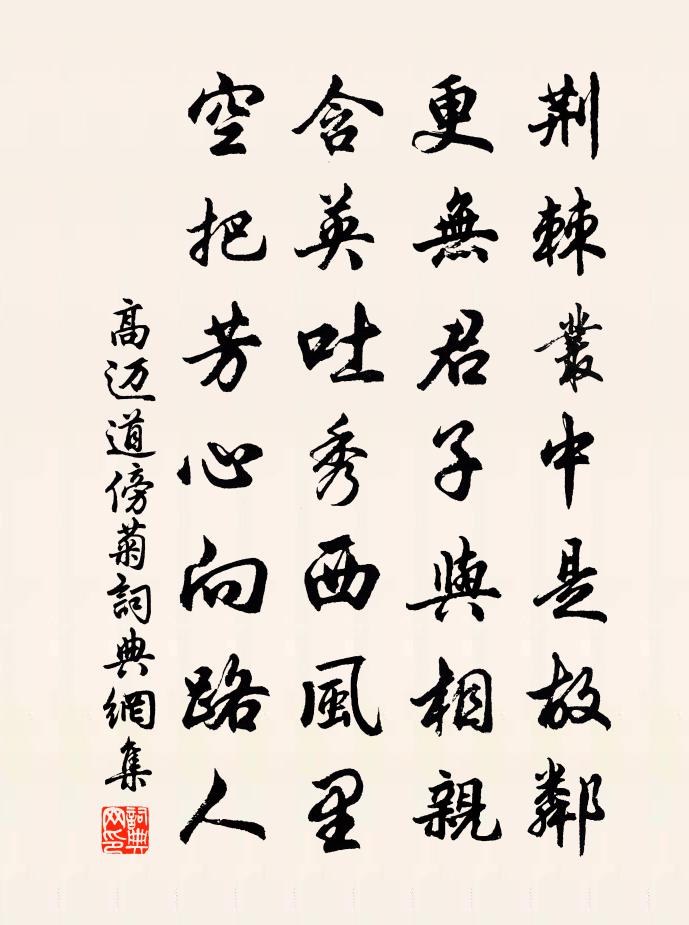 荆棘叢中是故鄰
更無君子與相親
含英吐秀西風里
空把芳心向路人
高迈道傍菊詞典網集
詞典
网印